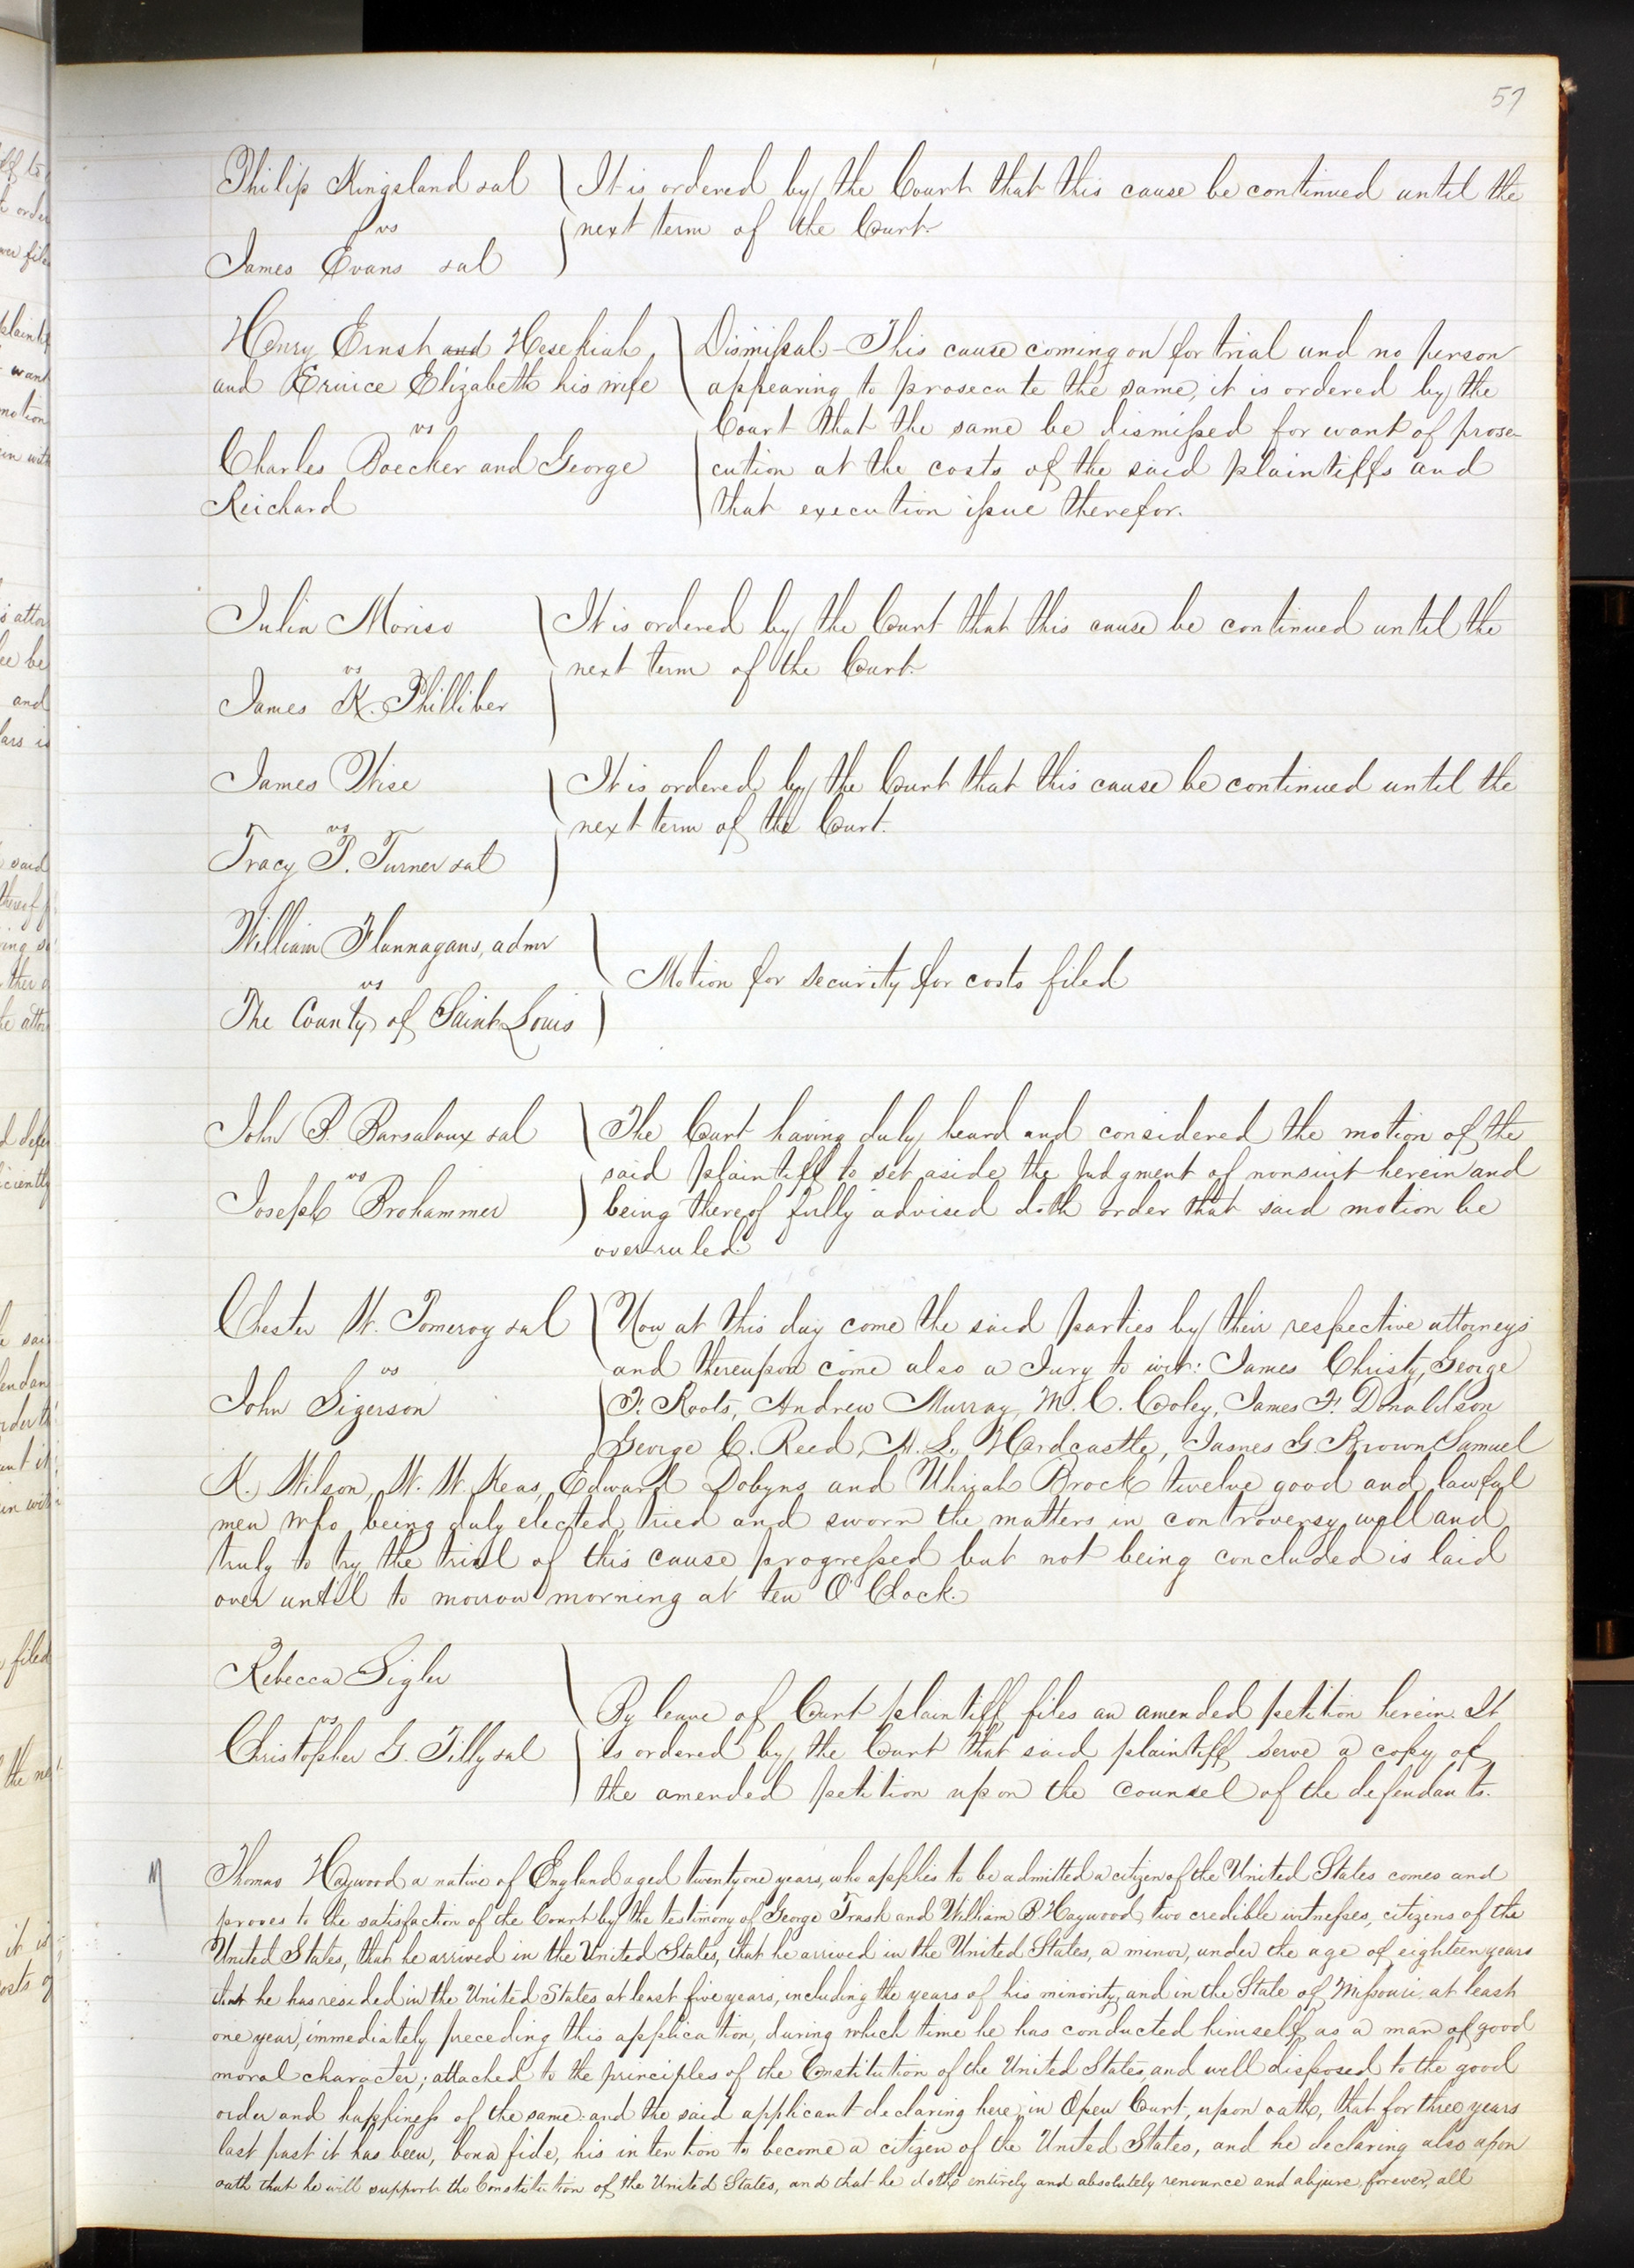 57
Philip Kingsland sal It is ordered by the Court that this cause be continued until the
vs next term of the Court.
James Evans sal
Henry Ernst and Hesekiah Dismissal - This cause coming on for trial and no person
and Elizabeth his wife appearing to prosecute the same, it is ordered by the
vs Court that the same be dismissed for want of prose-
Charles Boecker and George cution at the costs of the said plaintiffs and
Reichard that execution issue therefor.
Julia Moriso It is ordered by the Court that this cause be continued until the
vs next term of the Court.
James K. Philliber
James Wise It is ordered by the Court that this cause be continued until the
vs next term of the Court.
Tracy P. Turner sal
William Flannagans, admr
vs Motion for security for costs filed
The County of Saint Louis
John B. Barsaloux sal The Court having duly heard and considered the motion of the
vs said plaintiff to set aside the judgment of nonsuit herein and
Joseph Brohammer being thereof fully advised doth order that said motion be
overruled.
Chester W. Pomeroy sal Now at this day come the said parties by their respective attorneys
vs and thereupon come also a Jury to wit: James Christy, George
John Sigerson F. Roots, Andrew Murray, M. C. Cooley, James F. Donaldson
George C. Reed, H. L. Hardcastle, James G Brown Samuel
K. Wilson, W. W. Keas, Edward Dobyns and Uhriah Brock twelve good and lawful
men who being duly elected, tried and sworn the matters in controversy well and
truly to try, the trial of this cause progressed but not being concluded is laid
over until to morrow morning at ten O'Clock.
Rebecca Sigler
vs By leave of Court plaintiff files an amended petition herein. It
Christopher G. Tilly sal is ordered by the Court that said plaintiff serve a copy of
the amended petition upon the counsel of the defendants.
Thomas Haywood a native of England aged twenty one years, who applies to be admitted a citizen of the United States comes and
proves to the satisfaction of the Court by the testimony of George Trask and William B Haywood, two credible witnesses, citizens of the
United States, that he arrived in the United States, that he arrived in the United States, a minor, under the age of eighteen years
that he has resided in the United States at least five years, including the years of his minority, and in the State of Missouri at least
one year, immediately preceding this application, during which time he has conducted himself as a man of good
moral character; attached to the principles of the Constitution of the United States, and well disposed to the good
order and happiness of the same: and the said applicant declaring here, in Open Court, upon oath, that for three years
last past it has been, bona fide, his intention to become a citizen of the United States, and he declaring also upon
oath that he will support the Constitution of the United States, and that he doth entirely and absolutely renounce and abjure forever, all